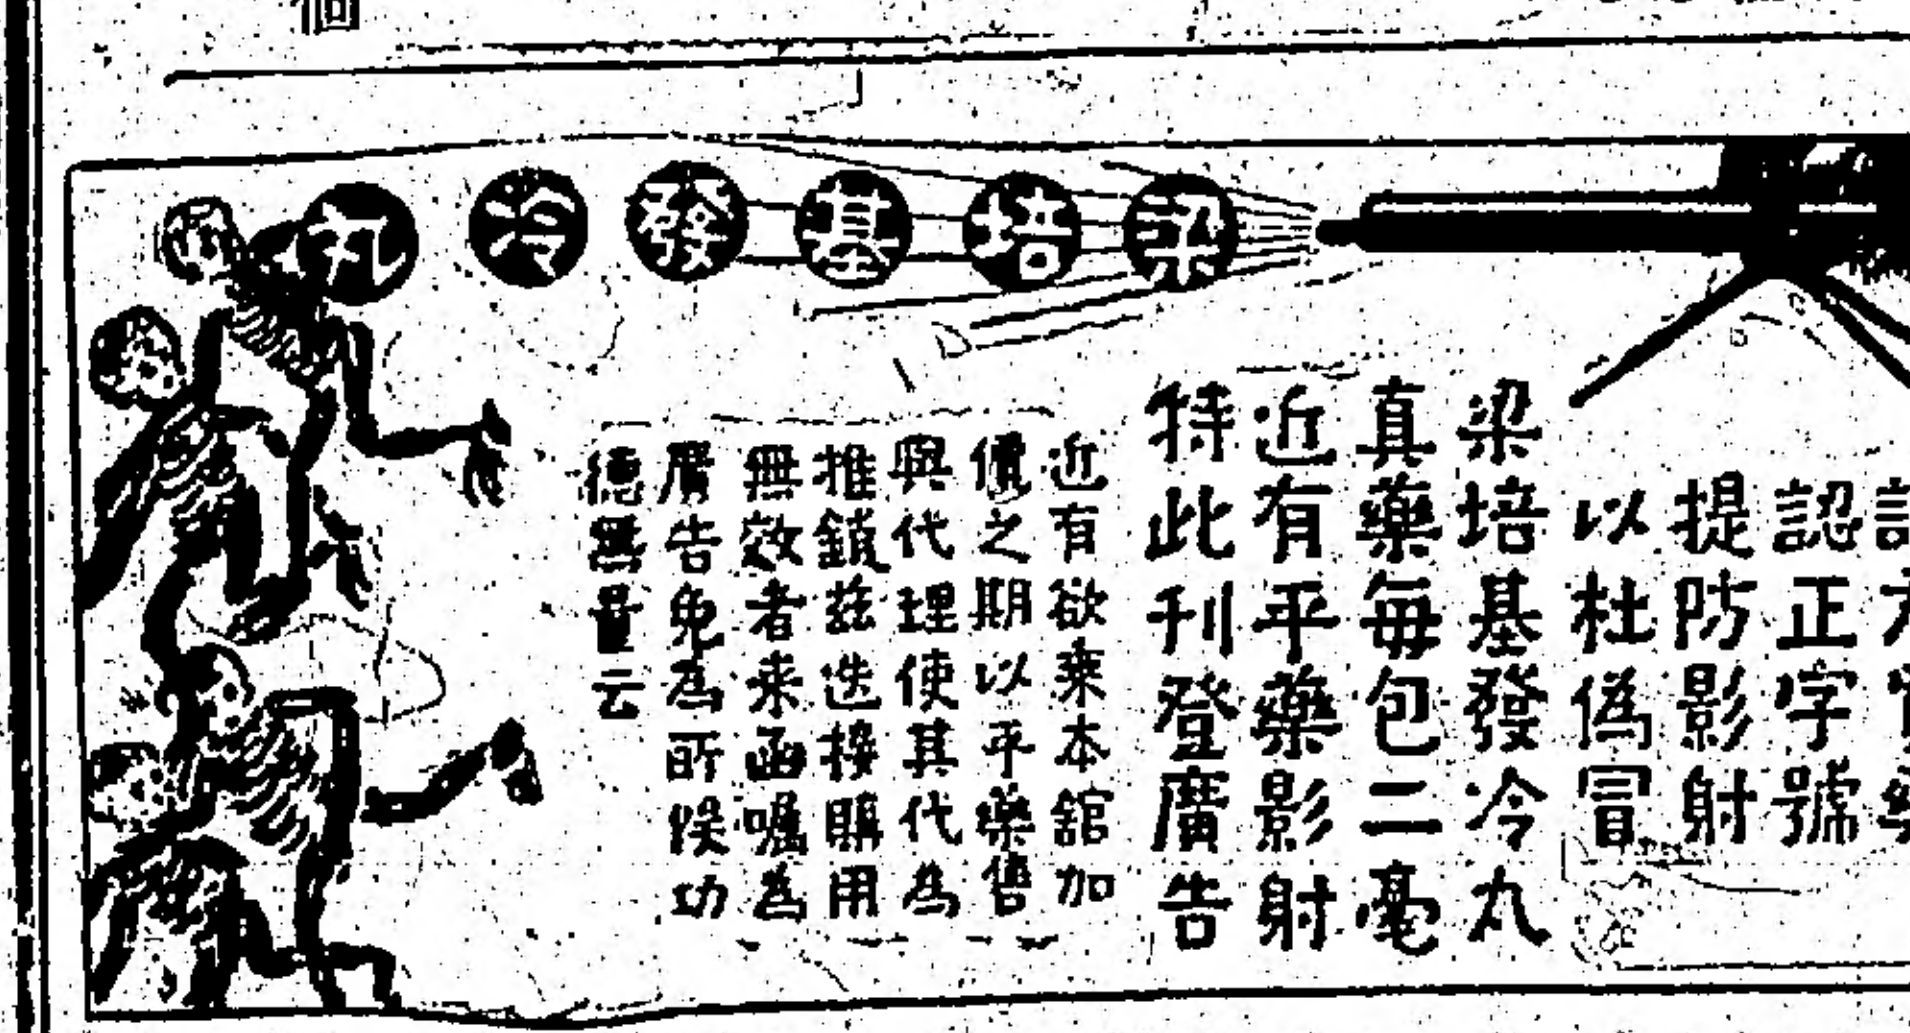 梁培基發冷丸
認正字號
提防影射
以杜偽冒
梁培基發冷丸
真藥每包二毫
近有平藥影射
特此刊登廣告
近有欲乘本舘加
價之期以平藥售
與代理使其代為
推銷茲迭接購用
無效者来函囑為
廣告免為所悞功
德無量云
個